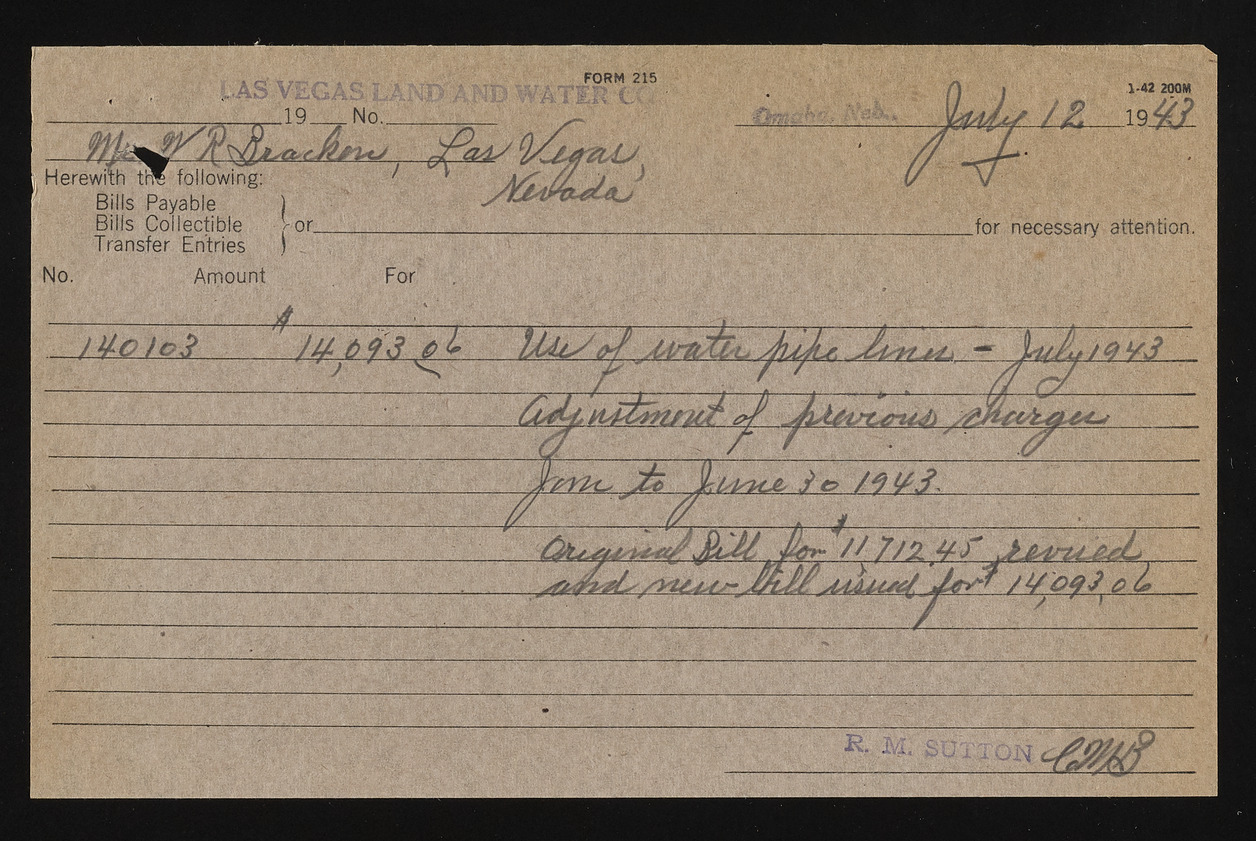 FORM 215
1-42 200M
LAS VEGAS LAND AND WATER CO
19 No.
Omaha, Neb. July 12 1943
Mr. W R Bracken, Las Vegas,
Nevada
Herewith the following:
Bills Payable
Bills Collectible
Transfer Entries
or for necessary attention.
No. Amount For
140103 $14,093.06 Use of water pipe lines - July 1943
Adjustment of previous charges
Jan to June 30 1943.
Original Bill for $11712.45 revised
and new bill issued for $14,093.06
R. M. SUTTON CMB